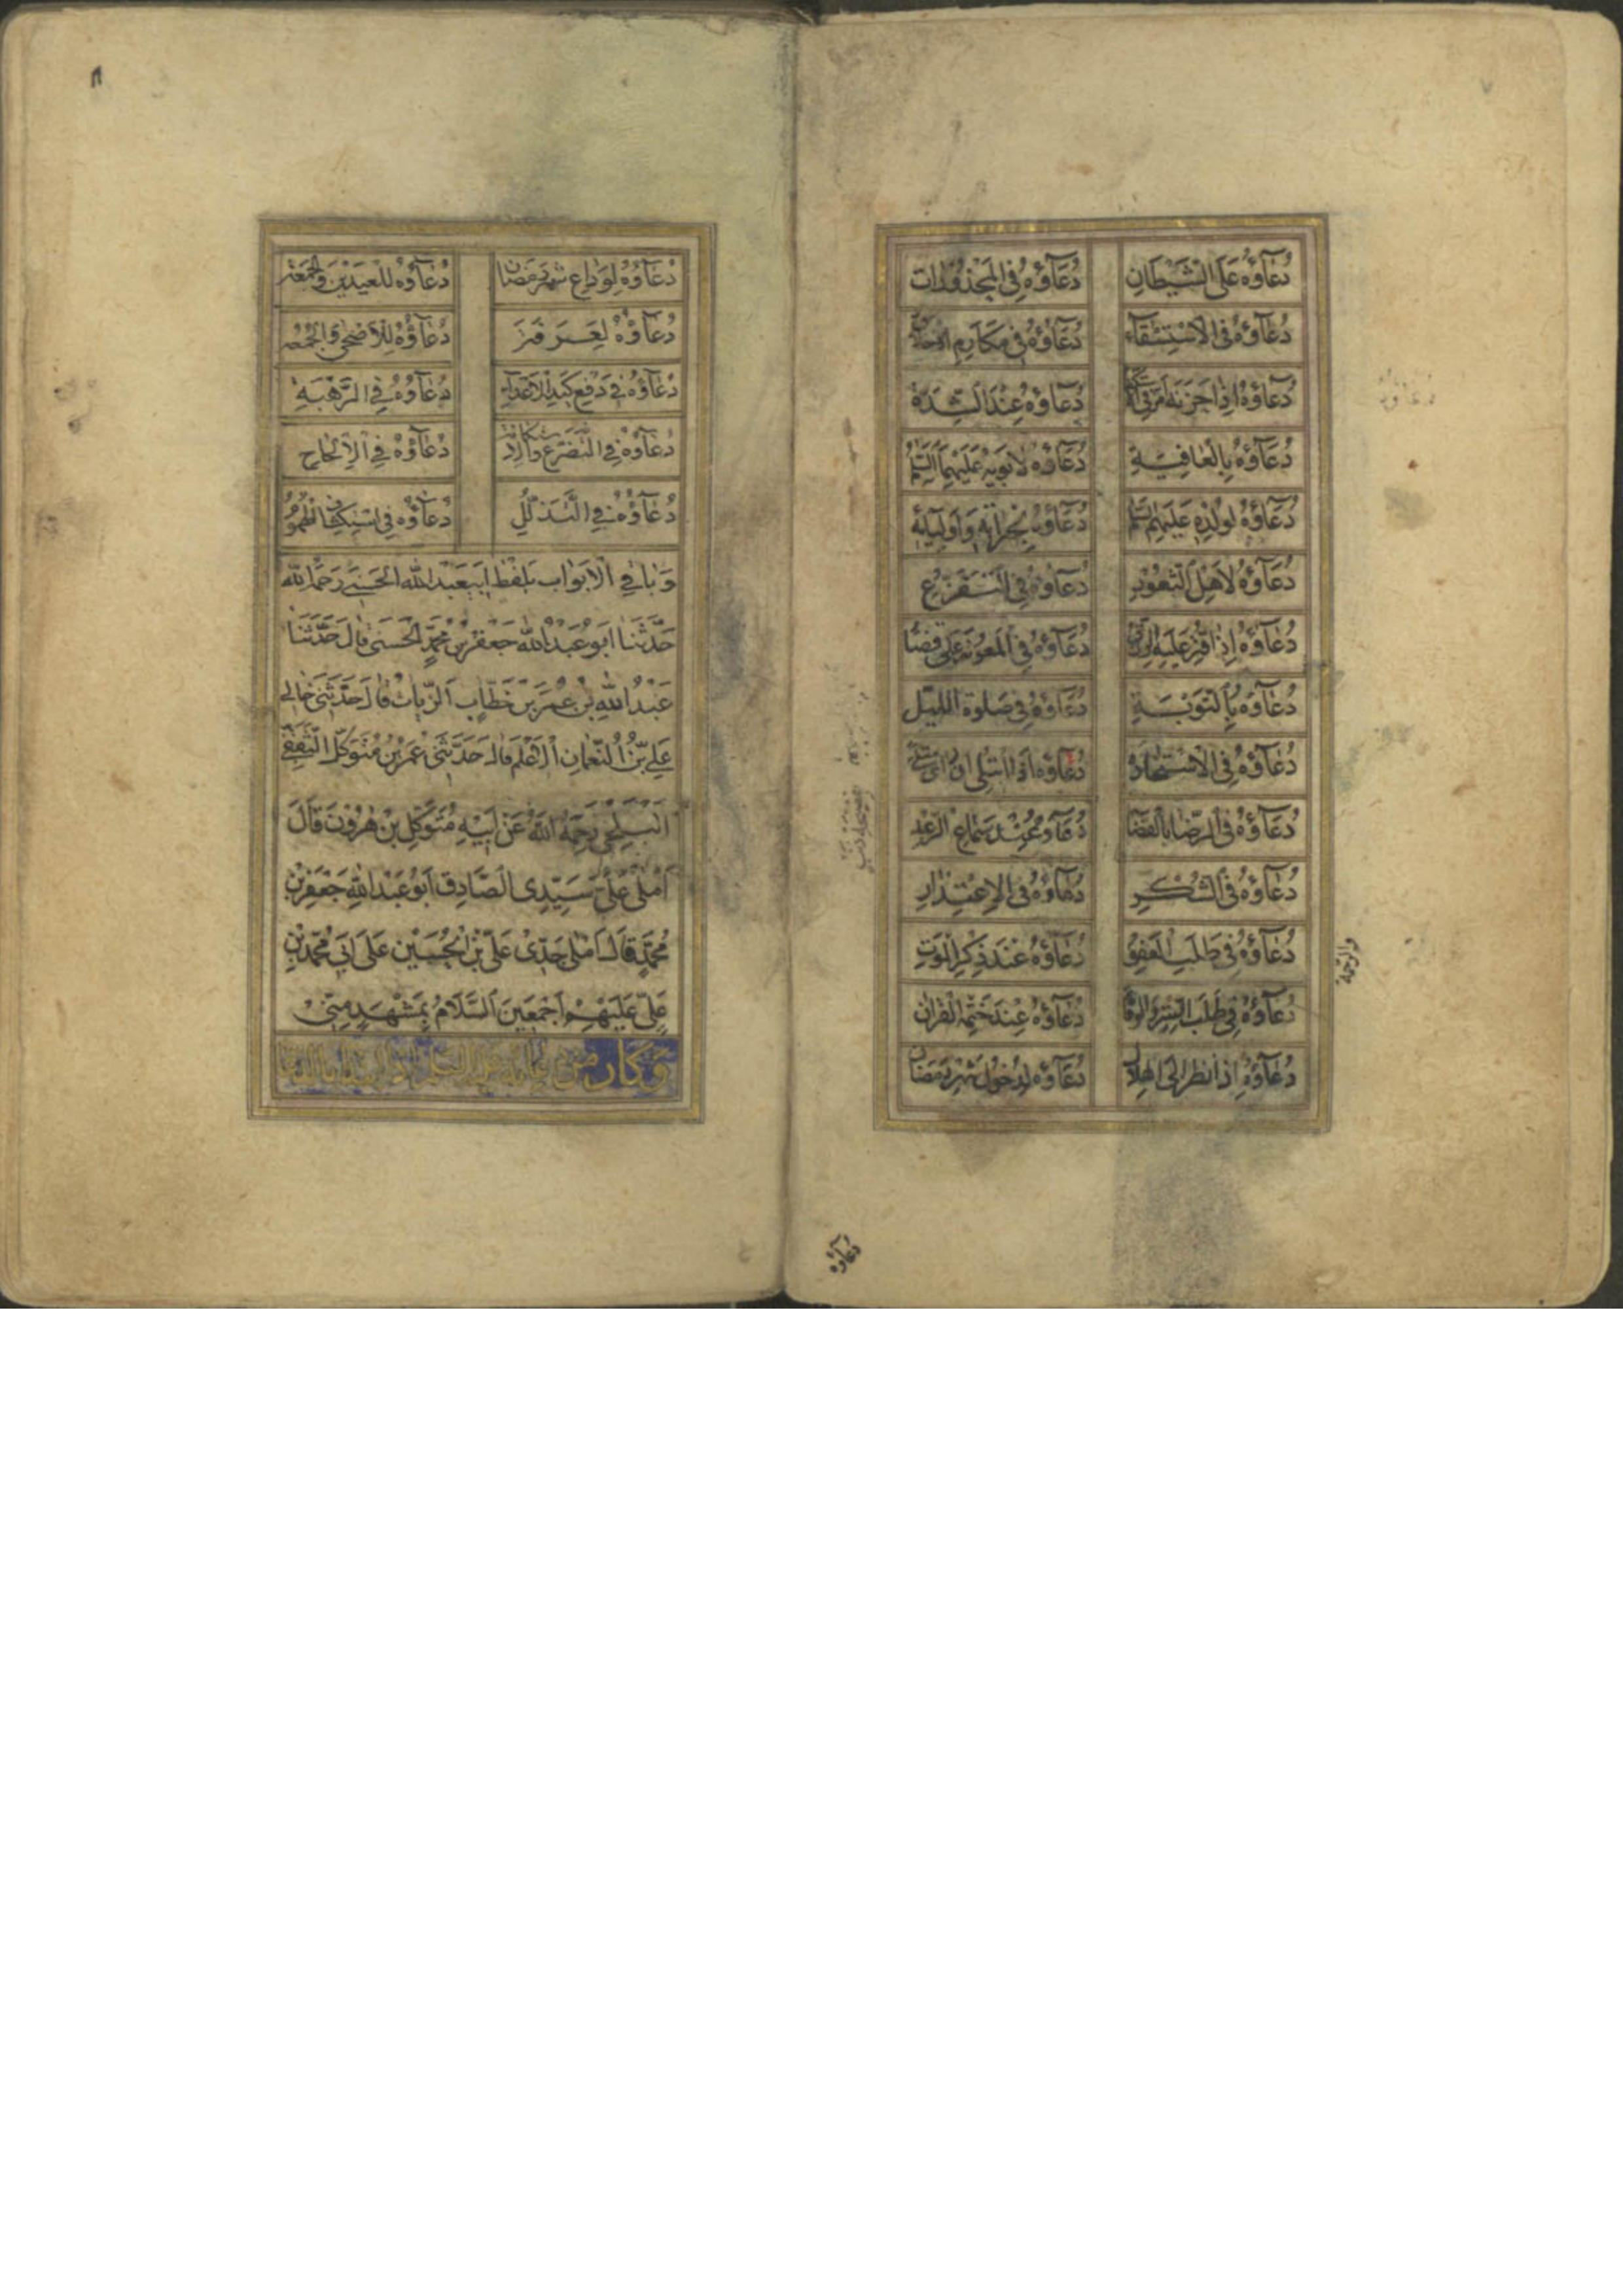 ٧
دُعَآؤُهُ عَلَى الشَّيْطَانِ
دُعَآؤُهُ فِى الْمَحْذُورَاتِ
دُعَآؤُهُ فِى الْاِسْتِسْقَآءِ
دُعَآؤُهُ فِى مَكَارِمِ الْاَخْلَاقِ
دُعَآؤُهُ اِذَا حَزَنَهُ اَمْرٌ
دُعَآؤُهُ عِنْدَ الشِّدَّةِ
دُعَآؤُهُ بِالْعَافِيَةِ
دُعَآؤُهُ لِاَبَوَيْهِ عَلَيْهِمَا السَّلَمُ
دُعَآؤُهُ لِوُلْدِهِ عَلَيْهِمُ السَّلَم
دُعَآؤُهُ لِجِيْرَانِهِ وَاَوْلِيَآئِهِ
دُعَآؤُهُ لِاَهْلِ الثُّغُوْرِ
دُعَآؤُهُ فِى التَّفَزُّعِ
دُعَآؤُهُ اِذَا قُتِّرَ عَلَيْهِ الرِّزْقُ
دُعَآؤُهُ فِى الْمَعُوْنَةِ عَلَى قَضَا
دُعَآؤُهُ بِالتَّوْبَةِ
دُعَآؤُهُ فِى صَلٰوةِ اللَّيْلِ
دُعَآؤُهُ فِى الْاِسْتِخَارَةِ
دُعَآؤُهُ اِذَا ابْتُلِىَ اَوْ رَاَى
دُعَآؤُهُ فِى الرِّضَا بِالْقَضَا
دُعَآؤُهُ عِنْدَ سَمَاعِ الرَّعْدِ
دُعَآؤُهُ فِى الشُّكْرِ
دُعَآؤُهُ فِى الْاِعْتِذَارِ
دُعَآؤُهُ فِى طَلَبِ الْعَفْوِ
والرحمة
دُعَآؤُهُ عِنْدَ ذِكْرِ الْمَوْتِ
دُعَآؤُهُ فِى طَلَبِ السِّتْرِ وَالْوِقَا
دُعَآؤُهُ عِنْدَ خَتْمِهِ الْقُرْاٰنَ
دُعَآؤُهُ اِذَا نَظَرَ اِلَى الْهِلَالِ
دُعَآؤُهُ لِدُخُوْلِ شَهْرِ رَمَضَانَ
دعاؤه
٨
دُعَآؤُهُ لِوَدَاعِ شَهْرِ رَمَضَانَ
دُعَآؤُهُ لِلْعِيْدَيْنِ وَالْجُمُعَةِ
دُعَآؤُهُ لِعَرَفَةَ
دُعَآؤُهُ لِلْاَضْحٰى وَالْجُمُعَة
دُعَآؤُهُ فِى دَفْعِ كَيْدِ الْاَعْدَآءِ
دُعَآؤُهُ فِى الرَّهْبَةِ
دُعَآؤُهُ فِى التَّضَرُّعِ وَالْاِسْتِكَانَةِ
دُعَآؤُهُ فِى الْاِلْحَاحِ
دُعَآؤُهُ فِى التَّذَلُّلِ
دُعَآؤُهُ فِى اسْتِكْشَافِ الْهُمُوْمِ
وَبَاقِى الْاَبْوَابِ بِلَفْظِ اَبِيعَبْدِ اللّٰهِ الْحَسَنِىِّ رَحِمَهُ اللّٰه
حَدَّثَنَا اَبُوْ عَبْدِ اللّٰهِ جَعْفَرُ بْنُ مُحَمَّدٍ الْحَسَنِىُّ قَالَ حَدَّثَنَا
عَبْدُ اللّٰهِ بْنُ عُمَرَ بْنِ خَطَّابٍ الزَّيَّاتُ قَالَ حَدَّثَنِى خَالِى
عَلِىُّ بْنُ النُّعْمَانِ الْاَعْلَمُ قَالَ حَدَّثَنِى عُمَرُ بْنُ مُتَوَكِّلٍ الثَّقَفِىُّ
الْبَلْخِىُّ رَحِمَهُ اللّٰهُ عَنْ اَبِيْهِ مُتَوَكِّلِ بْنِ هٰرُوْنَ قَالَ
اَمْلٰى عَلَىَّ سَيِّدِى الصَّادِقُ اَبُوْ عَبْدِ اللّٰهِ جَعْفَرُ بْنُ
مُحَمَّدٍ قَالَ اَمْلٰى جَدِّىْ عَلِىُّ بْنُ الْحُسَيْنِ عَلٰى اَبِى مُحَمَّدِ بْنِ
عَلِىٍّ عَلَيْهِمْ اَجْمَعِيْنَ السَّلَامُ بِمَشْهَدٍ مِنِّىْ
وكان من دعائه عليه السلم اذا ابتدا بالدعا